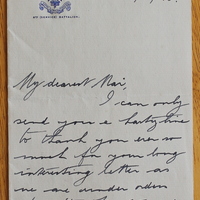 My dearest Mai,
I can only
send you a hasty line
to thank you ever so
much for your long
interesting letter as
we are under orders